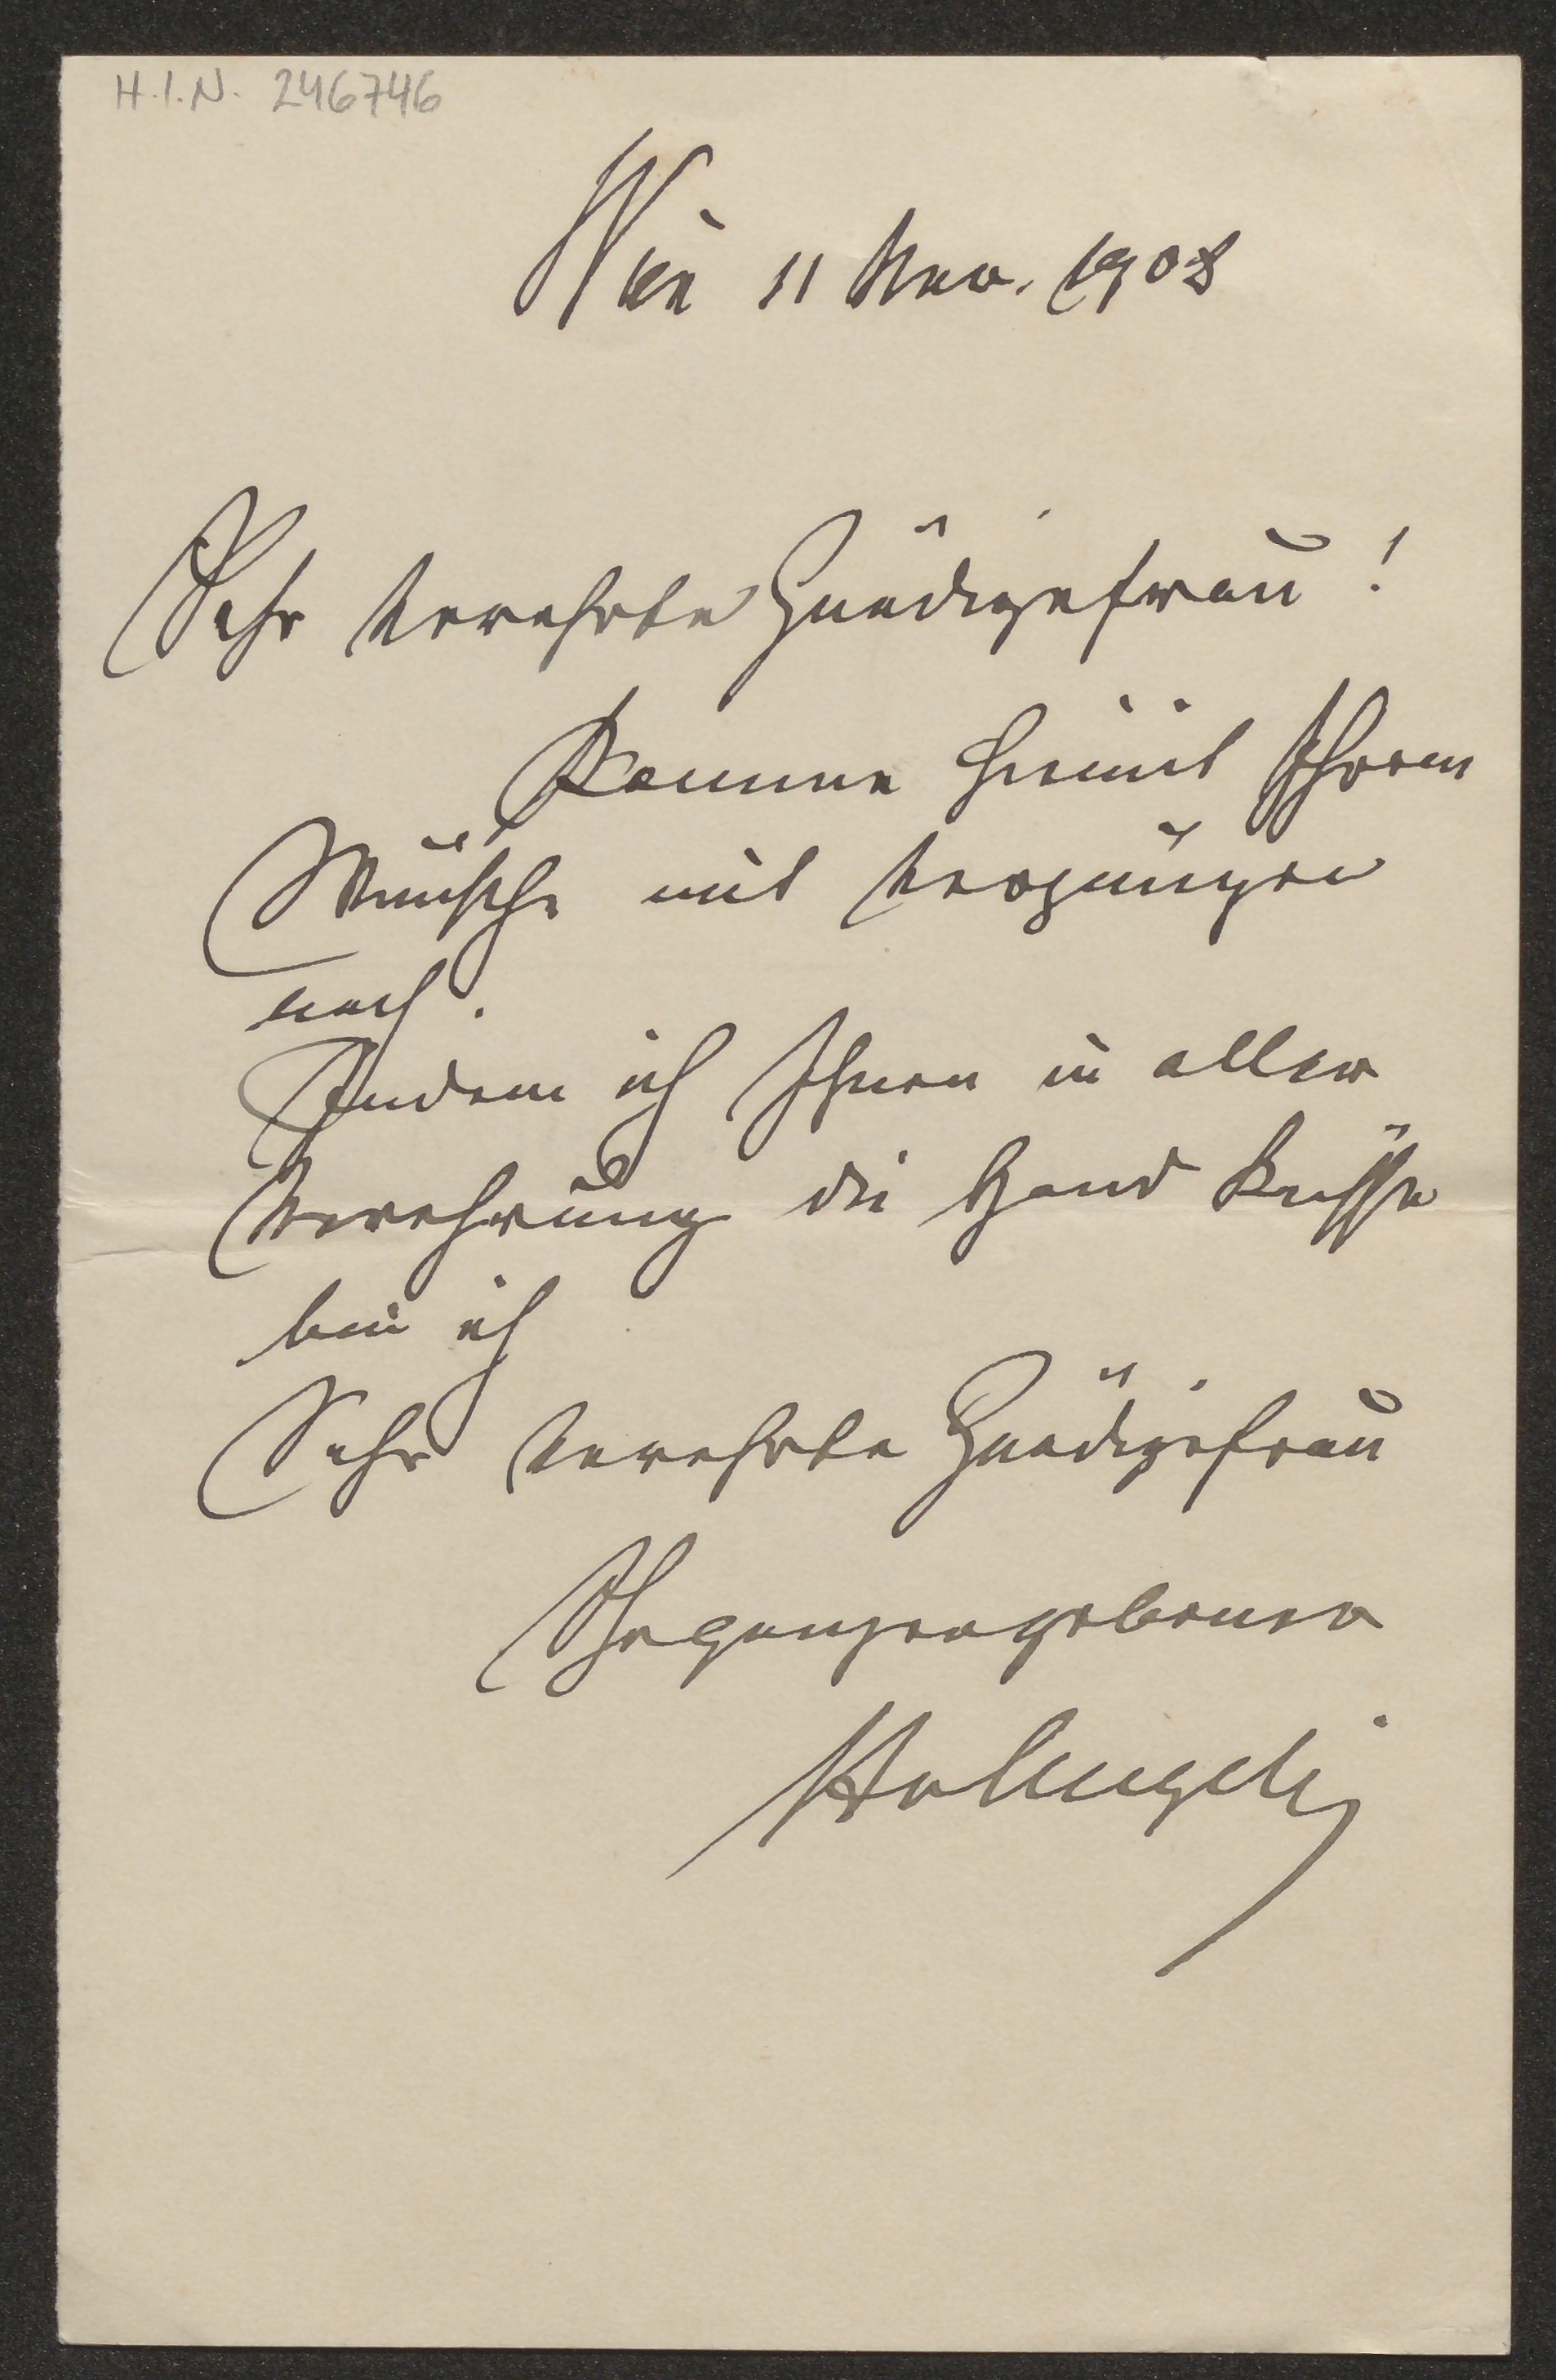 H.I.N. 246746
Wien 11 Nov. 1908
Sehr verehrte Gnädigefrau!
Komme hiemit Ihrem
Wunsche mit vergnügen
nach.
Indem ich Ihnen in aller
Verehrung die Hand küsse
bin ich
Sehr verehrte Gnädigefrau
Ihr ganzergebener
HvAngeli